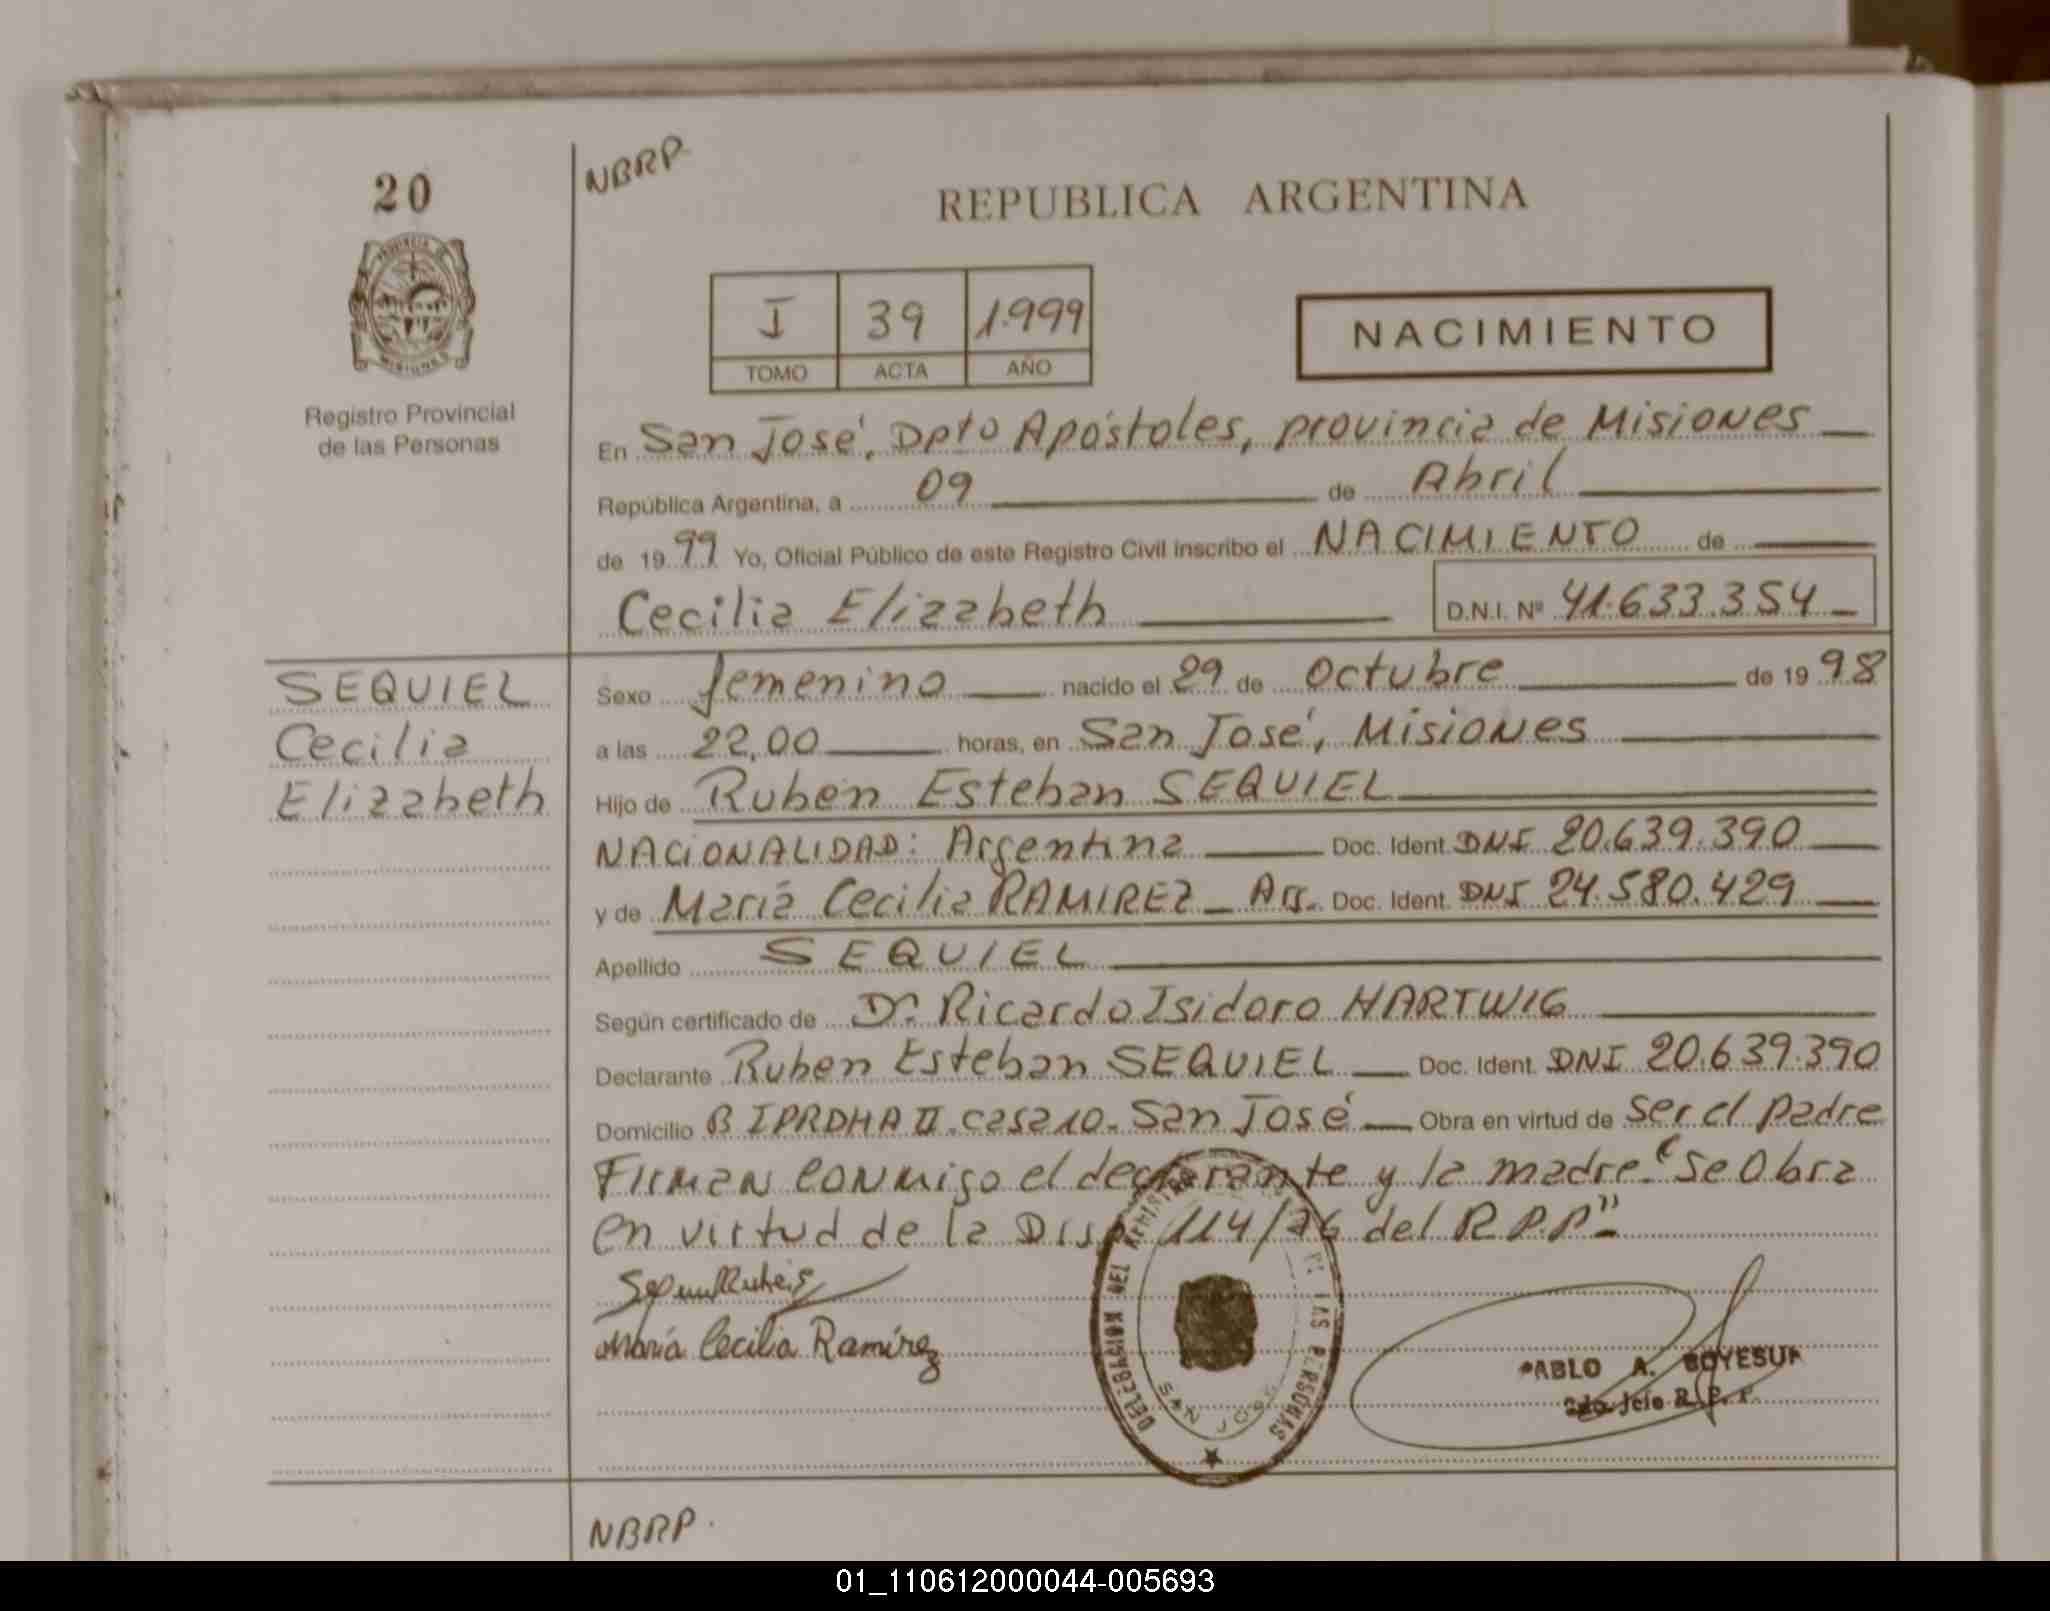 20
NBRP
REPUBLICA ARGENTINA
PROVINCIA DE
MISIONES
Registro Provincial
de las Personas
I 39 1.999
TOMO ACTA AÑO
NACIMIENTO
En San José, Dpto Apóstoles, provincia de Misiones
República Argentina, a 09 de Abril
de 1999 Yo, Oficial Público de este Registro Civil inscribo el NACIMIENTO de
Cecilia Elizabeth D.N.I. Nº 41.633.354
SEQUIEL
Cecilia
Elizabeth
Sexo femenino nacido el 29 de octubre de 1998
a las 22,00 horas, en San José, Misiones
Hijo de Ruben Esteban SEQUIEL
NACIONALIDAD: Argentina Doc. Ident. DNI 20.639.390
y de María Cecilia RAMIREZ _ Arg. Doc. Ident. DNI 24.580.429
Apellido SEQUIEL
Según certificado de Dr. Ricardo Isidoro HARTWIG
Declarante Ruben Esteban SEQUIEL Doc. Ident. DNI 20.639.390
Domicilio B IPRDHA II. casa 10. San José Obra en virtud de ser el padre
Firman conmigo el declarante y la madre. "Se Obra
en virtud de la Disp. 114/76 del R.P.P"
María Cecilia Ramírez
DELEGACION DEL REGISTRO DE LAS PERSONAS
SAN JOSE
PABLO A.
2do. Jefe R. P. P.
NBRP.
01_110612000044-005693